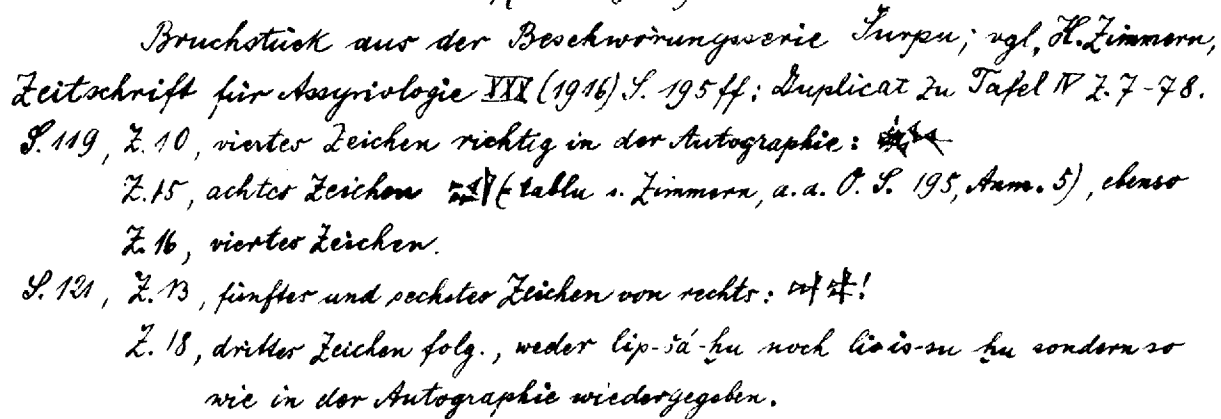 Bruchstück aus der Beschwörungsserie Šurpu; vgl. H. Zimmern,
Zeitschrift für Assyriologie XXX (1916) S. 195 ff; Duplicat zu Tafel IV Z. 7-78.
S. 119, Z. 10, viertes Zeichen richtig in der Autographie:
Z. 15, achtes Zeichen tablu s. Zimmern, a. a. O. S. 195, Anm. 5), ebenso
Z. 16, viertes Zeichen.
S. 121, Z. 13, fünftes und sechstes Zeichen von rechts: !
Z. 18, drittes Zeichen folg., weder lip-šá-ḫu noch ḫu sondern so
wie in der Autographie wiedergegeben.